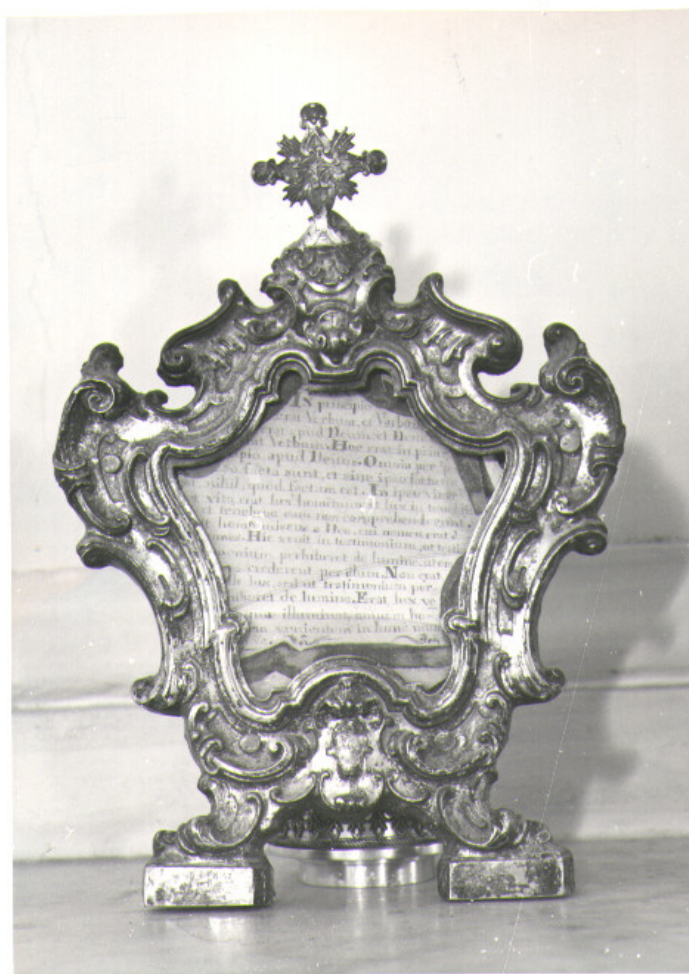 IN principio
erat Verbum, et Verbum
erat apud Deum, et Deus
erat Verbum. Hoc erat in princi
pio apud Deum. Omnia per ip
sum facta sunt, et sine ipso factu
nihil, quod factum est. In ipso vita
vita erat lux hominum, et lux in tene
tenebrae eam non comprehenderunt.
homo missus a Deo, cui nomen erat
Hic venit in testimonium, ut testi
monium perhiberet de lumine, ut om
crederent per illum. Non erat
lux, sed ut testimonium per
hiberet de lumine. Erat lux ve
quae illuminat omnem ho
venientem in hunc mun